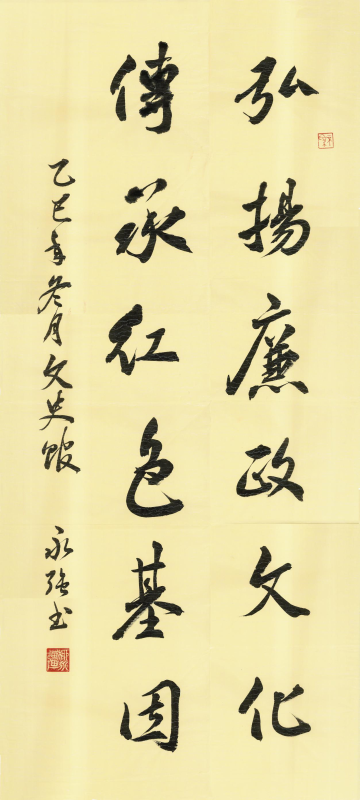 弘揚廉政文化
傳承紅色基因
乙巳年冬月文史館 永強書